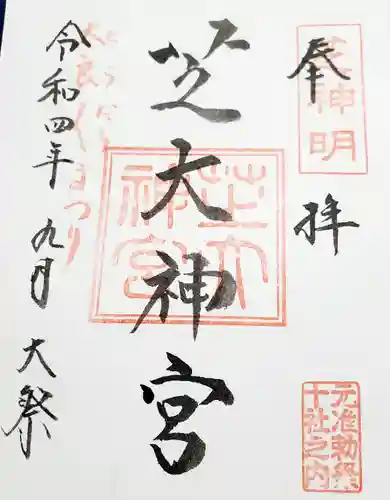 奉拝
芝神明
元准勅祭
十社之内
芝大神宮
芝大
神宮
令和四年 九月 大祭
太良くまつり